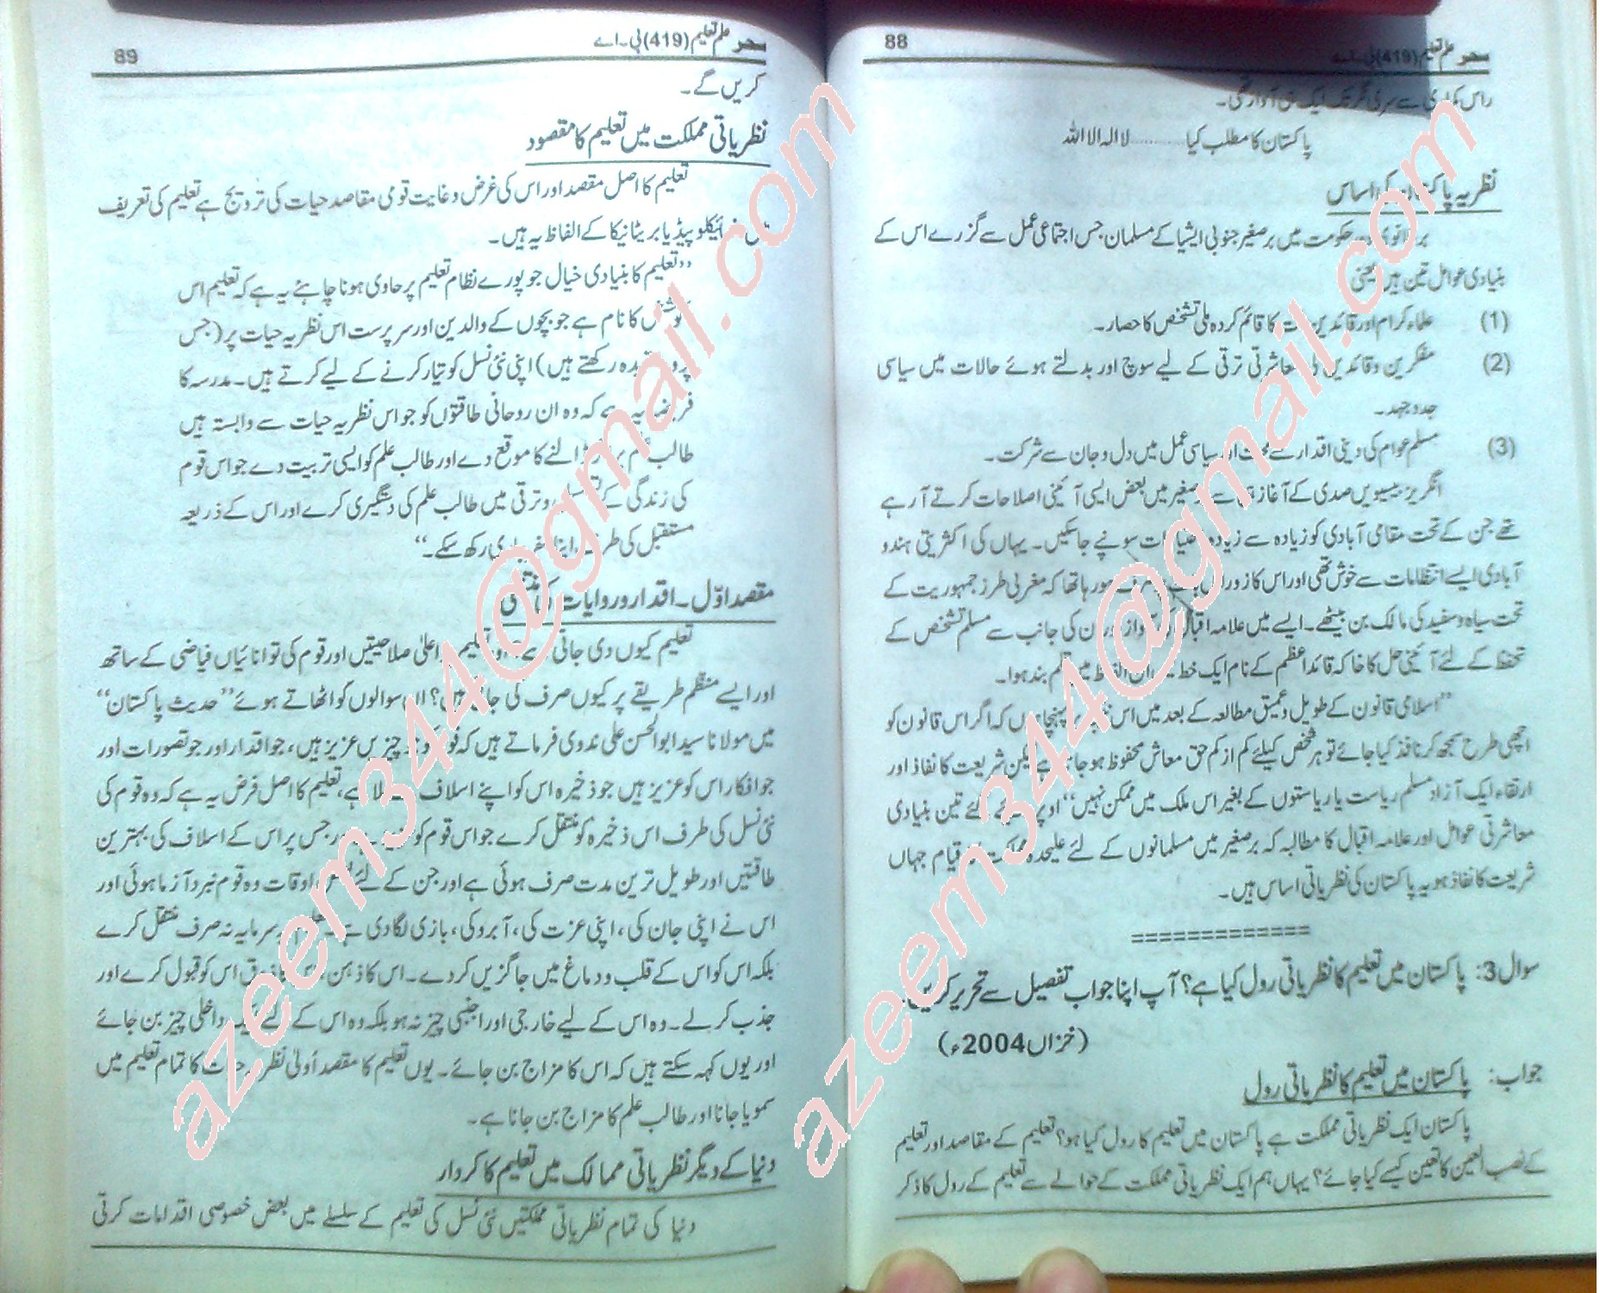 88
سحر علم تعلیم (419) بی۔اے
راس کماری سے سری نگر تک ایک ہی آواز تھی۔
پاکستان کا مطلب کیا ............ لا الہ الا اللہ
نظریہ پاکستان کی اساس
برطانوی دور حکومت میں برصغیر جنوبی ایشیا کے مسلمان جس اجتماعی عمل سے گزرے اس کے
بنیادی عوامل تین ہیں یعنی
(1) علماء کرام اور قائدین ملت کا قائم کردہ ملی تشخص کا حصار۔
(2) مفکرین و قائدین کی معاشرتی ترقی کے لیے سوچ اور بدلتے ہوئے حالات میں سیاسی
جدوجہد۔
(3) مسلم عوام کی دینی اقدار سے محبت اور سیاسی عمل میں دل و جان سے شرکت۔
انگریز بیسویں صدی کے آغاز ہی سے برصغیر میں بعض ایسی آئینی اصلاحات کرتے آ رہے
تھے جن کے تحت مقامی آبادی کو زیادہ سے زیادہ اختیارات سونپے جا سکیں۔ یہاں کی اکثریتی ہندو
آبادی ایسے انتظامات سے خوش تھی اور اس کا زور اس بات پر صرف ہو رہا تھا کہ مغربی طرز جمہوریت کے
تحت سیاہ و سفید کی مالک بن بیٹھے۔ ایسے میں علامہ اقبال کی آواز اور ان کی جانب سے مسلم تشخص کے
تحفظ کے لئے آئینی حل کا خاکہ قائداعظم کے نام ایک خط میں ان الفاظ میں قلم بند ہوا۔
"اسلامی قانون کے طویل و عمیق مطالعہ کے بعد میں اس نتیجہ پر پہنچا ہوں کہ اگر اس قانون کو
اچھی طرح سمجھ کر نافذ کیا جائے تو ہر شخص کیلئے کم از کم حق معاش محفوظ ہو جاتا ہے لیکن شریعت کا نفاذ اور
ارتقاء ایک آزاد مسلم ریاست یا ریاستوں کے بغیر اس ملک میں ممکن نہیں" اوپر دیئے گئے تین بنیادی
معاشرتی عوامل اور علامہ اقبال کا مطالبہ کہ برصغیر میں مسلمانوں کے لئے علیحدہ مملکت کا قیام جہاں
شریعت کا نفاذ ہو یہ پاکستان کی نظریاتی اساس ہیں۔
=============
سوال 3: پاکستان میں تعلیم کا نظریاتی رول کیا ہے؟ آپ اپنا جواب تفصیل سے تحریر کریں۔
(خزاں 2004ء)
جواب: پاکستان میں تعلیم کا نظریاتی رول
پاکستان ایک نظریاتی مملکت ہے پاکستان میں تعلیم کا رول کیا ہو؟ تعلیم کے مقاصد اور تعلیم
کے نصب العین کا تعین کیسے کیا جائے؟ یہاں ہم ایک نظریاتی مملکت کے حوالے سے تعلیم کے رول کا ذکر
azeem344@gmail.com
89
سحر علم تعلیم (419) بی۔اے
کریں گے۔
نظریاتی مملکت میں تعلیم کا مقصود
تعلیم کا اصل مقصد اور اس کی غرض و غایت قومی مقاصد حیات کی ترویج ہے تعلیم کی تعریف
میں انسائیکلوپیڈیا بریٹانیکا کے الفاظ یہ ہیں۔
"تعلیم کا بنیادی خیال جو پورے نظام تعلیم پر حاوی ہونا چاہئے یہ ہے کہ تعلیم اس
کوشش کا نام ہے جو بچوں کے والدین اور سرپرست اس نظریہ حیات پر (جس
پر وہ عقیدہ رکھتے ہیں) اپنی نئی نسل کو تیار کرنے کے لیے کرتے ہیں۔ مدرسہ کا
فریضہ یہ ہے کہ وہ ان روحانی طاقتوں کو جو اس نظریہ حیات سے وابستہ ہیں
طالب علم پر اثر ڈالنے کا موقع دے اور طالب علم کو ایسی تربیت دے جو اس قوم
کی زندگی کے تسلسل و ترقی میں طالب علم کی دستگیری کرے اور اس کے ذریعہ
مستقبل کی طرف اپنا سفر جاری رکھ سکے۔"
مقصد اوّل۔ اقدار و روایات کی منتقلی
تعلیم کیوں دی جاتی ہے؟ اور تعلیم پر اعلیٰ صلاحیتیں اور قوم کی توانائیاں فیاضی کے ساتھ
اور ایسے منظم طریقے پر کیوں صرف کی جاتی ہیں؟ ان سوالوں کو اٹھاتے ہوئے "حدیث پاکستان"
میں مولانا سید ابوالحسن علی ندوی فرماتے ہیں کہ قوم کو جو چیزیں عزیز ہیں، جو اقدار اور جو تصورات اور
جو افکار اس کو عزیز ہیں جو ذخیرہ اس کو اپنے اسلاف سے ملا ہے، تعلیم کا اصل فرض یہ ہے کہ وہ قوم کی
نئی نسل کی طرف اس ذخیرہ کو منتقل کرے جو اس قوم کو عزیز ہے اور جس پر اس کے اسلاف کی بہترین
طاقتیں اور طویل ترین مدت صرف ہوئی ہے اور جن کے لئے بعض اوقات وہ قوم نبرد آزما ہوئی اور
اس نے اپنی جان کی، اپنی عزت کی، آبرو کی، بازی لگا دی ہے۔ تعلیم یہ سرمایہ نہ صرف منتقل کرے
بلکہ اس کو اس کے قلب و دماغ میں جاگزیں کر دے۔ اس کا ذہن، اس کا ذوق اس کو قبول کرے اور
جذب کر لے۔ وہ اس کے لیے خارجی اور اجنبی چیز نہ ہو بلکہ وہ اس کے لئے ایک داخلی چیز بن جائے
اور یوں کہہ سکتے ہیں کہ اس کا مزاج بن جائے۔ یوں تعلیم کا مقصد اُولیٰ نظریہ حیات کا تمام تعلیم میں
سمویا جانا اور طالب علم کا مزاج بن جانا ہے۔
دنیا کے دیگر نظریاتی ممالک میں تعلیم کا کردار
دنیا کی تمام نظریاتی مملکتیں نئی نسل کی تعلیم کے سلسلے میں بعض خصوصی اقدامات کرتی
azeem344@gmail.com